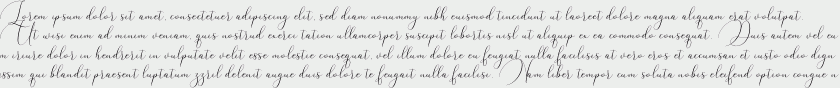 Lorem ipsum dolor sit amet, consectetuer adipiscing elit, sed diam nonummy nibh euismod tincidunt ut laoreet dolore magna aliquam erat volutpat.
Ut wisi enim ad minim veniam, quis nostrud exerci tation ullamcorper suscipit lobortis nisl ut aliquip ex ea commodo consequat. Duis autem vel eu
m iriure dolor in hendrerit in vulputate velit esse molestie consequat, vel illum dolore eu feugiat nulla facilisis at vero eros et accumsan et iusto odio dign
issim qui blandit praesent luptatum zzril delenit augue duis dolore te feugait nulla facilisi. Nam liber tempor cum soluta nobis eleifend option congue n